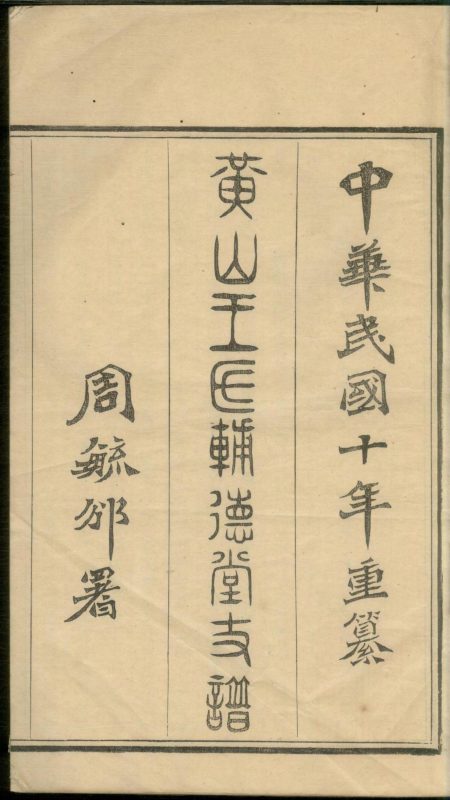 中華民國十年重纂
黃山王氏輔德堂支譜
周毓邠署